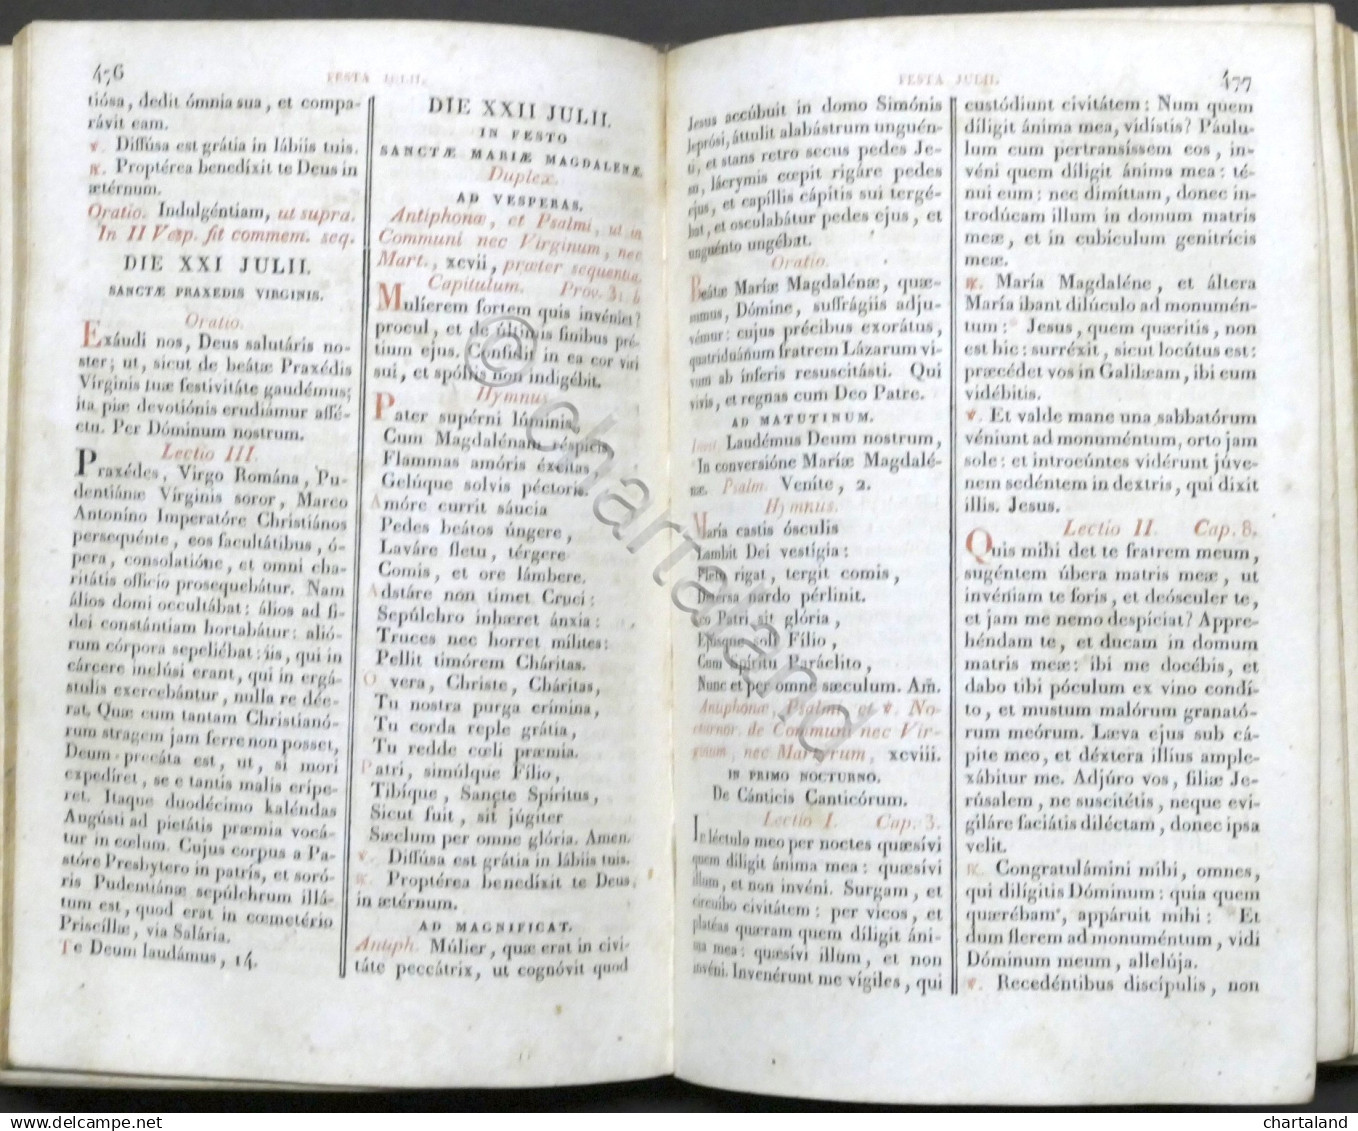 476
FESTA JULII.
tiósa, dedit ómnia sua, et compa-
rávit eam.
℣. Diffúsa est grátia in lábiis tuis.
℟. Proptérea benedíxit te Deus in
ætérnum.
Oratio. Indulgéntiam, ut supra.
In II Vesp. fit commem. seq.
DIE XXI JULII.
SANCTÆ PRAXEDIS VIRGINIS.
Oratio.
Exáudi nos, Deus salutáris no-
ster; ut, sicut de beátæ Praxédis
Vírginis tuæ festivitáte gaudémus;
ita piæ devotiónis erudiámur affé-
ctu. Per Dóminum nostrum.
Lectio III.
Praxédes, Virgo Romána, Pu-
dentiánæ Vírginis soror, Marco
Antoníno Imperatóre Christiános
persequénte, eos facultátibus, ó-
pera, consolatióne, et omni cha-
ritátis officio prosequebátur. Nam
álios domi occultábat: álios ad fi-
dei constántiam hortabátur: alió-
rum córpora sepeliébat: iis, qui in
cárcere inclúsi erant, qui in ergá-
stulis exercebántur, nulla re dée-
rat. Quæ cum tantam Christianó-
rum stragem jam ferre non posset,
Deum precáta est, ut, si mori
expedíret, se e tantis malis erípe-
ret. Itaque duodécimo kaléndas
Augústi ad pietátis præmia vocá-
tur in cœlum. Cujus corpus a Pa-
stóre Presbytero in patris, et soró-
ris Pudentiánæ sepúlchrum illá-
tum est, quod erat in cœmetério
Priscíllæ, via Salária.
Te Deum laudámus, 14.
DIE XXII JULII.
IN FESTO
SANCTÆ MARIÆ MAGDALENÆ
Duplex.
AD VESPERAS.
Antiphonæ, et Psalmi, ut in
Communi nec Virginum, nec
Mart., xcvii, præter sequentia.
Capitulum. Prov. 31. b
Mulíerem fortem quis invéniet?
procul, et de últimis finibus pré-
tium ejus. Confidit in ea cor viri
sui, et spóliis non indigébit.
Hymnus.
Pater supérni lúminis,
Cum Magdalénam réspicis,
Flammas amóris éxcitas,
Gelúque solvis péctoris.
Amóre currit sáucia
Pedes beátos úngere,
Laváre fletu, térgere
Comis, et ore lámbere.
Adstáre non timet Cruci:
Sepúlchro inhæret ánxia:
Truces nec horret mílites:
Pellit timórem Cháritas.
O vera, Christe, Cháritas,
Tu nostra purga crímina,
Tu corda reple grátia,
Tu redde cœli præmia.
Patri, simúlque Fílio,
Tibíque, Sancte Spíritus,
Sicut fuit, sit júgiter
Sæclum per omne glória. Amen.
℣. Diffúsa est grátia in lábiis tuis.
℟. Proptérea benedíxit te Deus
in ætérnum.
AD MAGNIFICAT.
Antiph. Múlier, quæ erat in civi-
táte peccátrix, ut cognóvit quod
FESTA JULII.
477
Jesus accúbuit in domo Simónis
leprósi, áttulit alabástrum unguén-
ti, et stans retro secus pedes Je-
su, lácrymis cœpit rigáre pedes
ejus, et capíllis cápitis sui tergé-
bat, et osculabátur pedes ejus, et
unguénto ungébat.
Oratio.
Beátæ Maríæ Magdalénæ, quæ-
sumus, Dómine, suffrágiis adju-
vémur: cujus précibus exorátus,
quatriduánum fratrem Lázarum vi-
vum ab ínferis resuscitásti. Qui
vivis, et regnas cum Deo Patre.
AD MATUTINUM.
Invit. Laudémus Deum nostrum,
In conversióne Maríæ Magdalé-
næ. Psalm. Veníte, 2.
Hymnus.
María castis ósculis
Lambit Dei vestígia:
Fletu rigat, tergit comis,
Detersa nardo pérlinit.
Deo Patri sit glória,
Ejúsque soli Fílio,
Cum Spíritu Paráclito,
Nunc et per omne sæculum. Am̃.
Antiphonæ, Psalmi, et ℣. No-
cturnor. de Communi nec Vir-
ginum, nec Martyrum, xcviii.
IN PRIMO NOCTURNO.
De Cánticis Canticórum.
Lectio I. Cap. 3.
In léctulo meo per noctes quæsívi
quem díligit ánima mea: quæsívi
illum, et non invéni. Surgam, et
circuíbo civitátem: per vicos, et
pláteas quæram quem díligit áni-
ma mea: quæsívi illum, et non
invéni. Invenérunt me vígiles, qui
custódiunt civitátem: Num quem
díligit ánima mea, vidístis? Páulu-
lum cum pertransíssem eos, in-
véni quem díligit ánima mea: té-
nui eum: nec dimíttam, donec in-
trodúcam illum in domum matris
meæ, et in cubículum genitrícis
meæ.
℟. María Magdaléne, et áltera
María ibant dilúculo ad monumén-
tum: * Jesus, quem quæritis, non
est hic: surréxit, sicut locútus est:
præcédet vos in Galilæam, ibi eum
vidébitis.
℣. Et valde mane una sabbatórum
véniunt ad monuméntum, orto jam
sole: et introeúntes vidérunt júve-
nem sedéntem in dextris, qui dixit
illis. Jesus.
Lectio II. Cap. 8.
Quis mihi det te fratrem meum,
sugéntem úbera matris meæ, ut
invéniam te foris, et deósculer te,
et jam me nemo despíciat? Appre-
héndam te, et ducam in domum
matris meæ: ibi me docébis, et
dabo tibi póculum ex vino condí-
to, et mustum malórum granató-
rum meórum. Læva ejus sub cá-
pite meo, et déxtera illíus ample-
xábitur me. Adjúro vos, fíliæ Je-
rúsalem, ne suscitétis, neque evi-
giláre faciátis diléctam, donec ipsa
velit.
℟. Congratulámini mihi, omnes,
qui dilígitis Dóminum: quia quem
quærébam, appáruit mihi: * Et
dum flerem ad monuméntum, vidi
Dóminum meum, allelúja.
℣. Recedéntibus discípulis, non
© chartaland
delcampe.net
chartaland